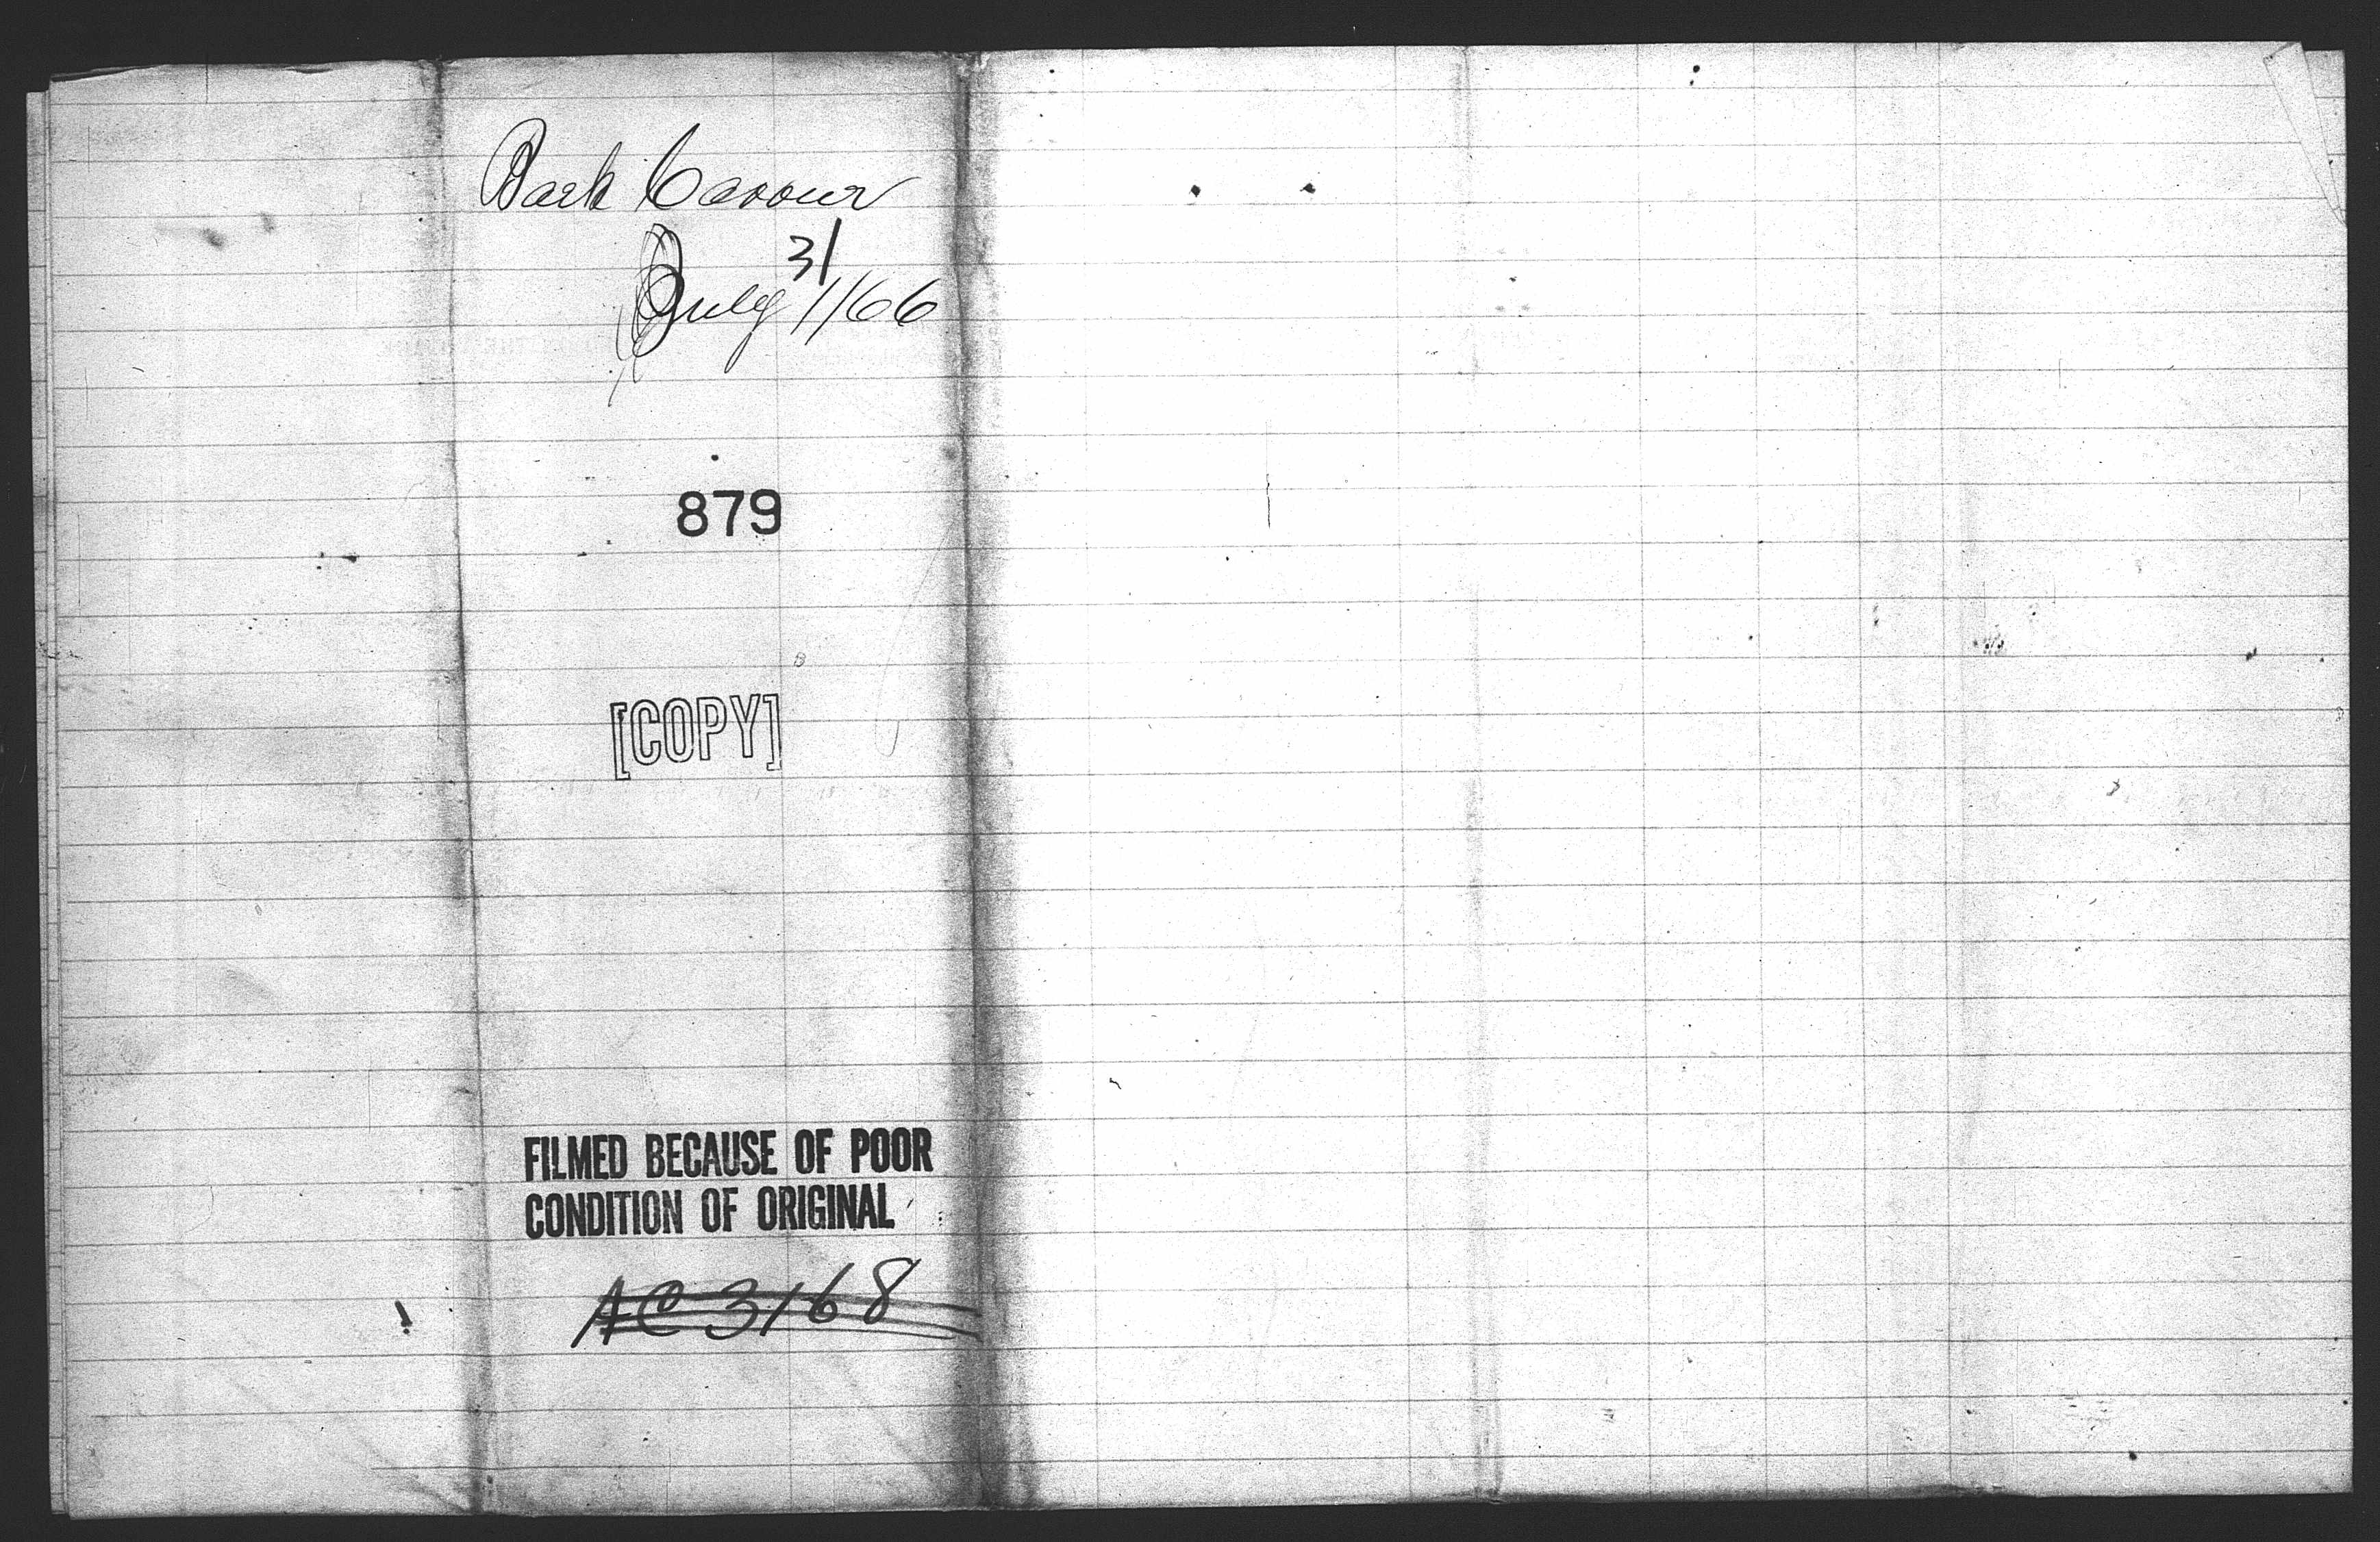 Bark Cavour
July 31/66
879
[COPY]
FILMED BECAUSE OF POOR
CONDITION OF ORIGINAL
AC 3168